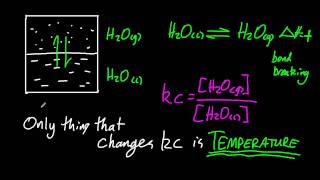 H₂O(g)
H₂O(l)
H₂O(l) ⇌ H₂O(g) ΔH+
bond
breaking
kc = [H₂O(g)]
[H₂O(l)]
Only thing that
changes kc is TEMPERATURE